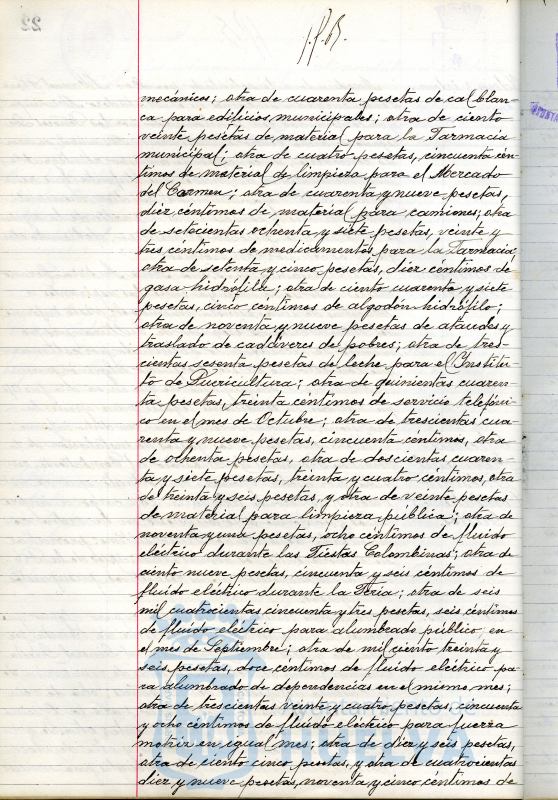 22
mecánicos; otra de cuarenta pesetas de cal blan-
ca para edificios municipales; otra de ciento
veinte pesetas de material para la Farmacia
municipal; otra de cuatro pesetas, cincuenta cén-
timos de material de limpieza para el Mercado
del Carmen; otra de cuarenta y nueve pesetas,
diez céntimos de material para camiones; otra
de setecientas ochenta y siete pesetas, veinte y
tres céntimos de medicamentos para la Farmacia;
otra de setenta y cinco pesetas, diez céntimos de
gasa hidrófila; otra de ciento cuarenta y siete
pesetas, cinco céntimos de algodón hidrófilo;
otra de noventa y nueve pesetas de ataudes y
traslado de cadáveres de pobres; otra de tres-
cientas sesenta pesetas de leche para el Institu-
to de Puericultura; otra de quinientas cuaren-
ta pesetas, treinta céntimos de servicio telefóni-
co en el mes de Octubre; otra de trescientas cua
renta y nueve pesetas, cincuenta céntimos, otra
de ochenta pesetas, otra de doscientas cuaren-
ta y siete pesetas, treinta y cuatro céntimos, otra
de treinta y seis pesetas, y otra de veinte pesetas
de material para limpieza pública; otra de
noventa y una pesetas, ocho céntimos de fluido
eléctrico durante las Fiestas Colombinas; otra de
ciento nueve pesetas, cincuenta y seis céntimos de
fluido eléctrico durante la Feria; otra de seis
mil cuatrocientas cincuenta y tres pesetas, seis céntimos
de fluido eléctrico para alumbrado público en
el mes de Septiembre; otra de mil ciento treinta y
seis pesetas, doce céntimos de fluido eléctrico pa-
ra alumbrado de dependencias en el mismo mes;
otra de trescientas veinte y cuatro pesetas, cincuenta
y ocho céntimos de fluido eléctrico para fuerza
motriz en igual mes; otra de diez y seis pesetas,
otra de ciento cinco pesetas, y otra de cuatrocientas
diez y nueve pesetas, noventa y cinco céntimos de